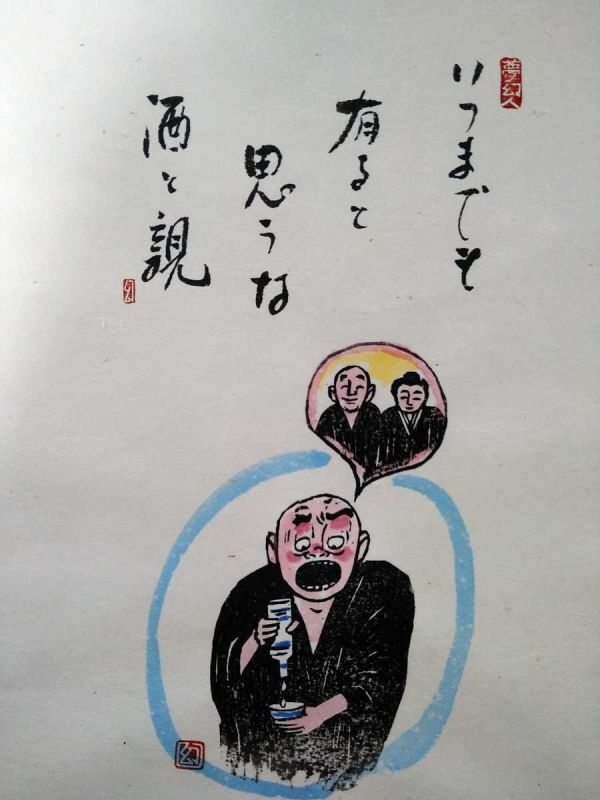 夢幻人
いつまでも
有ると
思うな
酒と親
幻